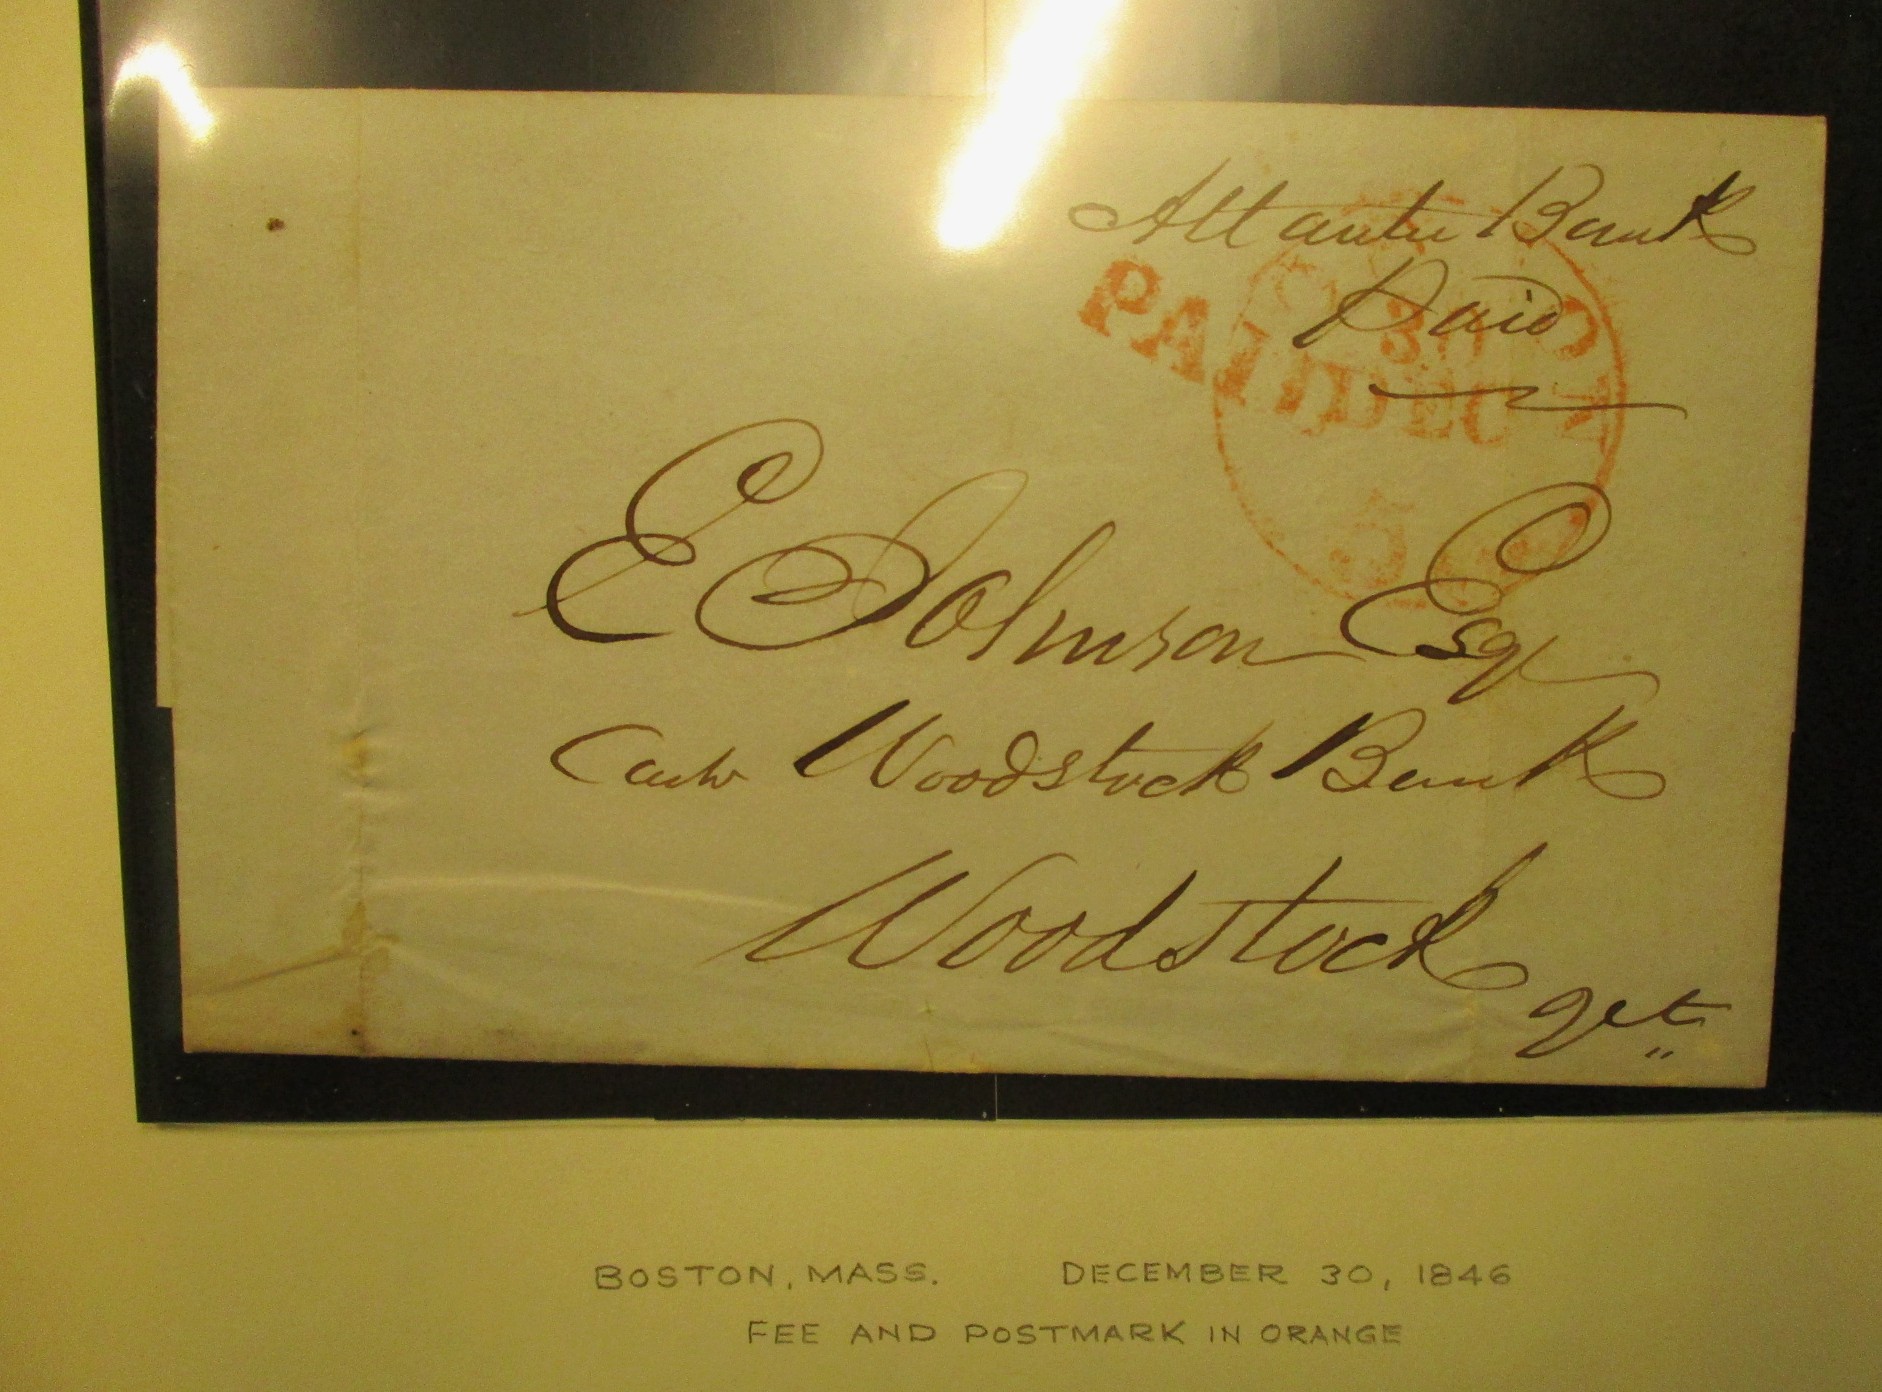 Atlantic Bank
Paid
PAID
BOSTON
30
DEC
5
E Johnson Esq
Cash Woodstock Bank
Woodstock
BOSTON, MASS. DECEMBER 30, 1846
FEE AND POSTMARK IN ORANGE